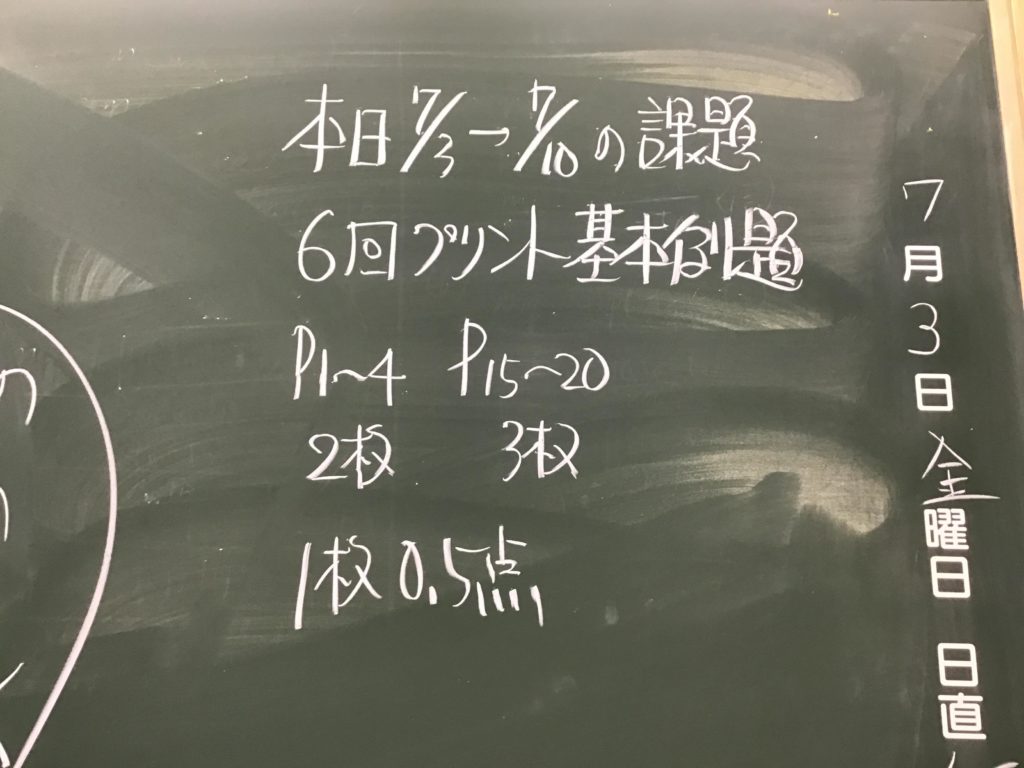 本日7/3→7/10の課題
6回プリント基本例題
P1~4 P15~20
2枚 3枚
1枚0.5点
7月3日金曜日 日直
の